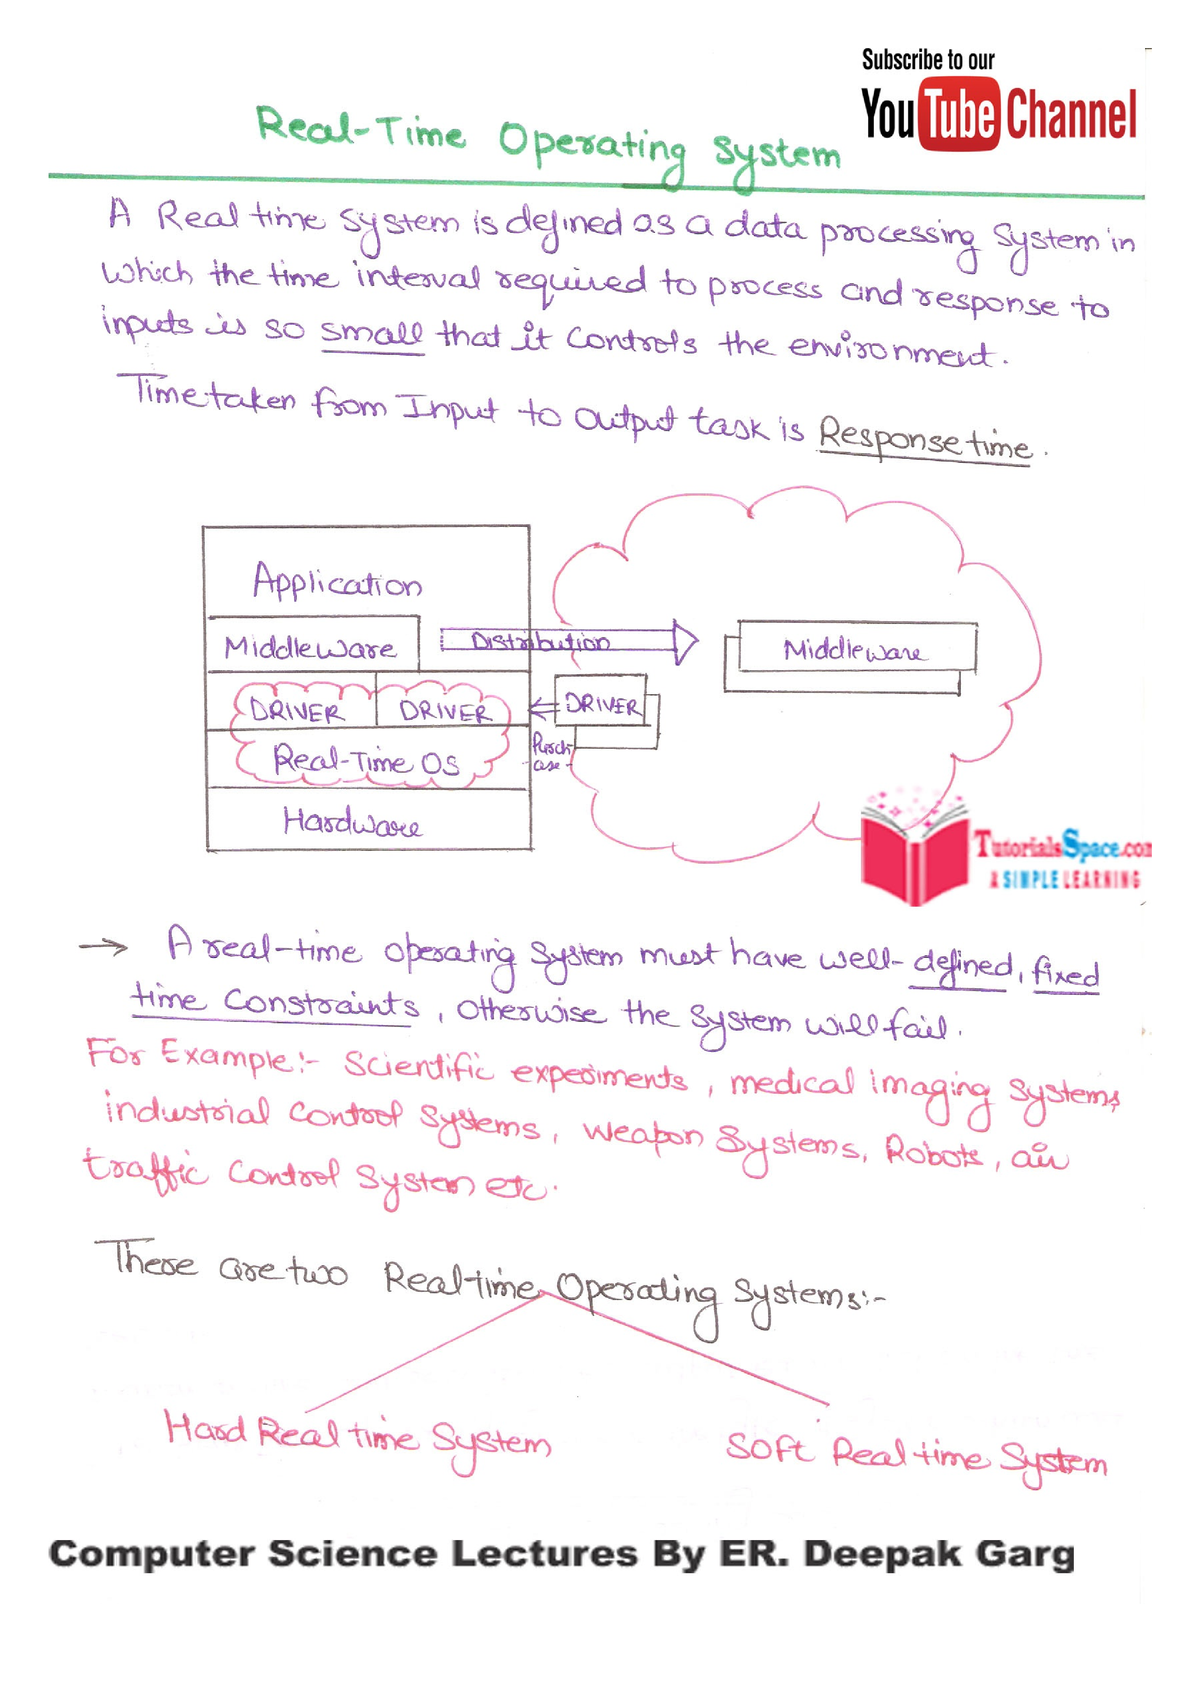 Subscribe to our
YouTube Channel
Real-Time Operating System
A Real time system is defined as a data processing system in
which the time interval required to process and response to
inputs is so small that it controls the environment.
Time taken from Input to output task is Response time.
Application
Middleware
Distribution
Middleware
DRIVER DRIVER
DRIVER
Real-Time OS
Hardware
TutorialsSpace.com
A SIMPLE LEARNING
→ A real-time operating system must have well-defined, fixed
time constraints, otherwise the system will fail.
For Example:- Scientific experiments, medical imaging systems,
industrial control systems, weapon systems, Robots, air
traffic control system etc.
These are two Real time Operating Systems:-
Hard Real time System
Soft Real time System
Computer Science Lectures By ER. Deepak Garg